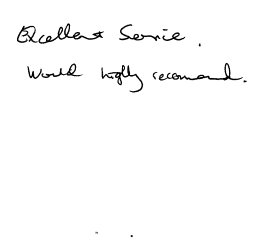 Excellent Service.
Would highly recommend.